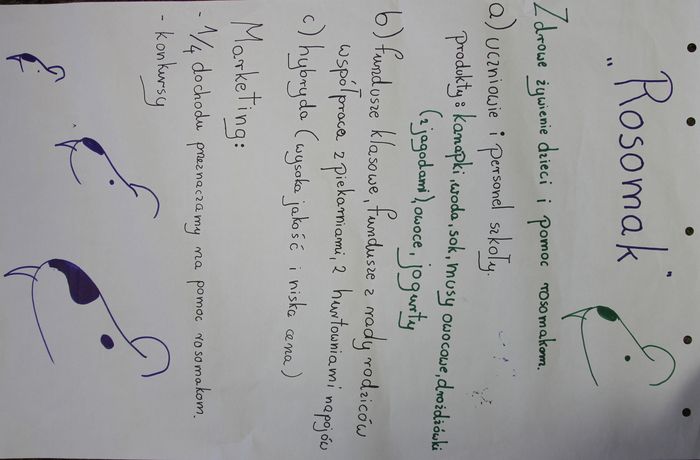 "Rosomak"
Zdrowe żywienie dzieci i pomoc rosomakom.
a) uczniowie i personel szkoły.
produkty: kanapki, woda, sok, musy owocowe, drożdżówki
(z jagodami), owoce, jogurty
b) fundusze klasowe, fundusze z rady rodziców
współpraca z piekarniami, z hurtowniami napojów
c) hybryda (wysoka jakość i niska cena)
Marketing:
- 1/4 dochodu przeznaczamy na pomoc rosomakom.
- konkursy